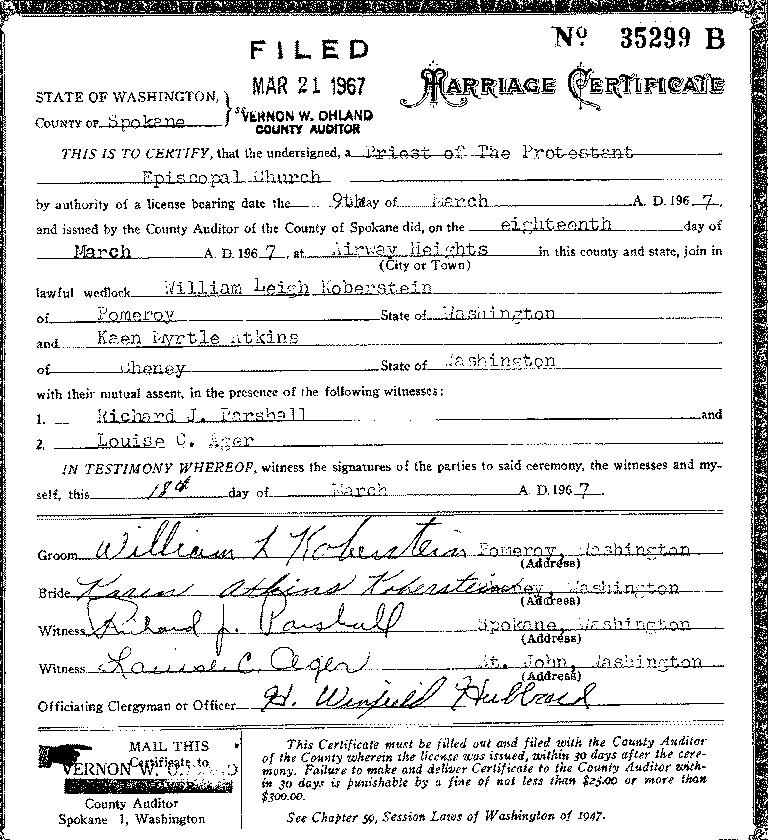 Nº 35299 B
FILED
MAR 21 1967
VERNON W. OHLAND
COUNTY AUDITOR
MARRIAGE CERTIFICATE
STATE OF WASHINGTON, } ss
COUNTY OF Spokane
THIS IS TO CERTIFY, that the undersigned, a Priest of The Protestant
Episcopal Church
by authority of a license bearing date the 9th day of March A. D. 196 7,
and issued by the County Auditor of the County of Spokane did, on the eighteenth day of
March A. D. 196 7, at Airway Heights in this county and state, join in
(City or Town)
lawful wedlock William Leigh Koberstein
of Pomeroy State of Washington
and Kaen Myrtle Atkins
of Cheney State of Washington
with their mutual assent, in the presence of the following witnesses:
1. Richard J. Parshall and
2. Louise C. Ager
IN TESTIMONY WHEREOF, witness the signatures of the parties to said ceremony, the witnesses and my-
self, this 18th day of March A. D. 196 7.
Groom William L Koberstein Pomeroy, Washington
(Address)
Bride Karen Atkins Koberstein Cheney, Washington
(Address)
Witness Richard J. Parshall Spokane, Washington
(Address)
Witness Louise C. Ager St. John, Washington
(Address)
Officiating Clergyman or Officer H. Winfield Hubbard
MAIL THIS
Certificate to
VERNON W. OHLAND
County Auditor
Spokane 1, Washington
This Certificate must be filled out and filed with the County Auditor
of the County wherein the license was issued, within 30 days after the cere-
mony. Failure to make and deliver Certificate to the County Auditor with-
in 30 days is punishable by a fine of not less than $25.00 or more than
$300.00.
See Chapter 59, Session Laws of Washington of 1947.